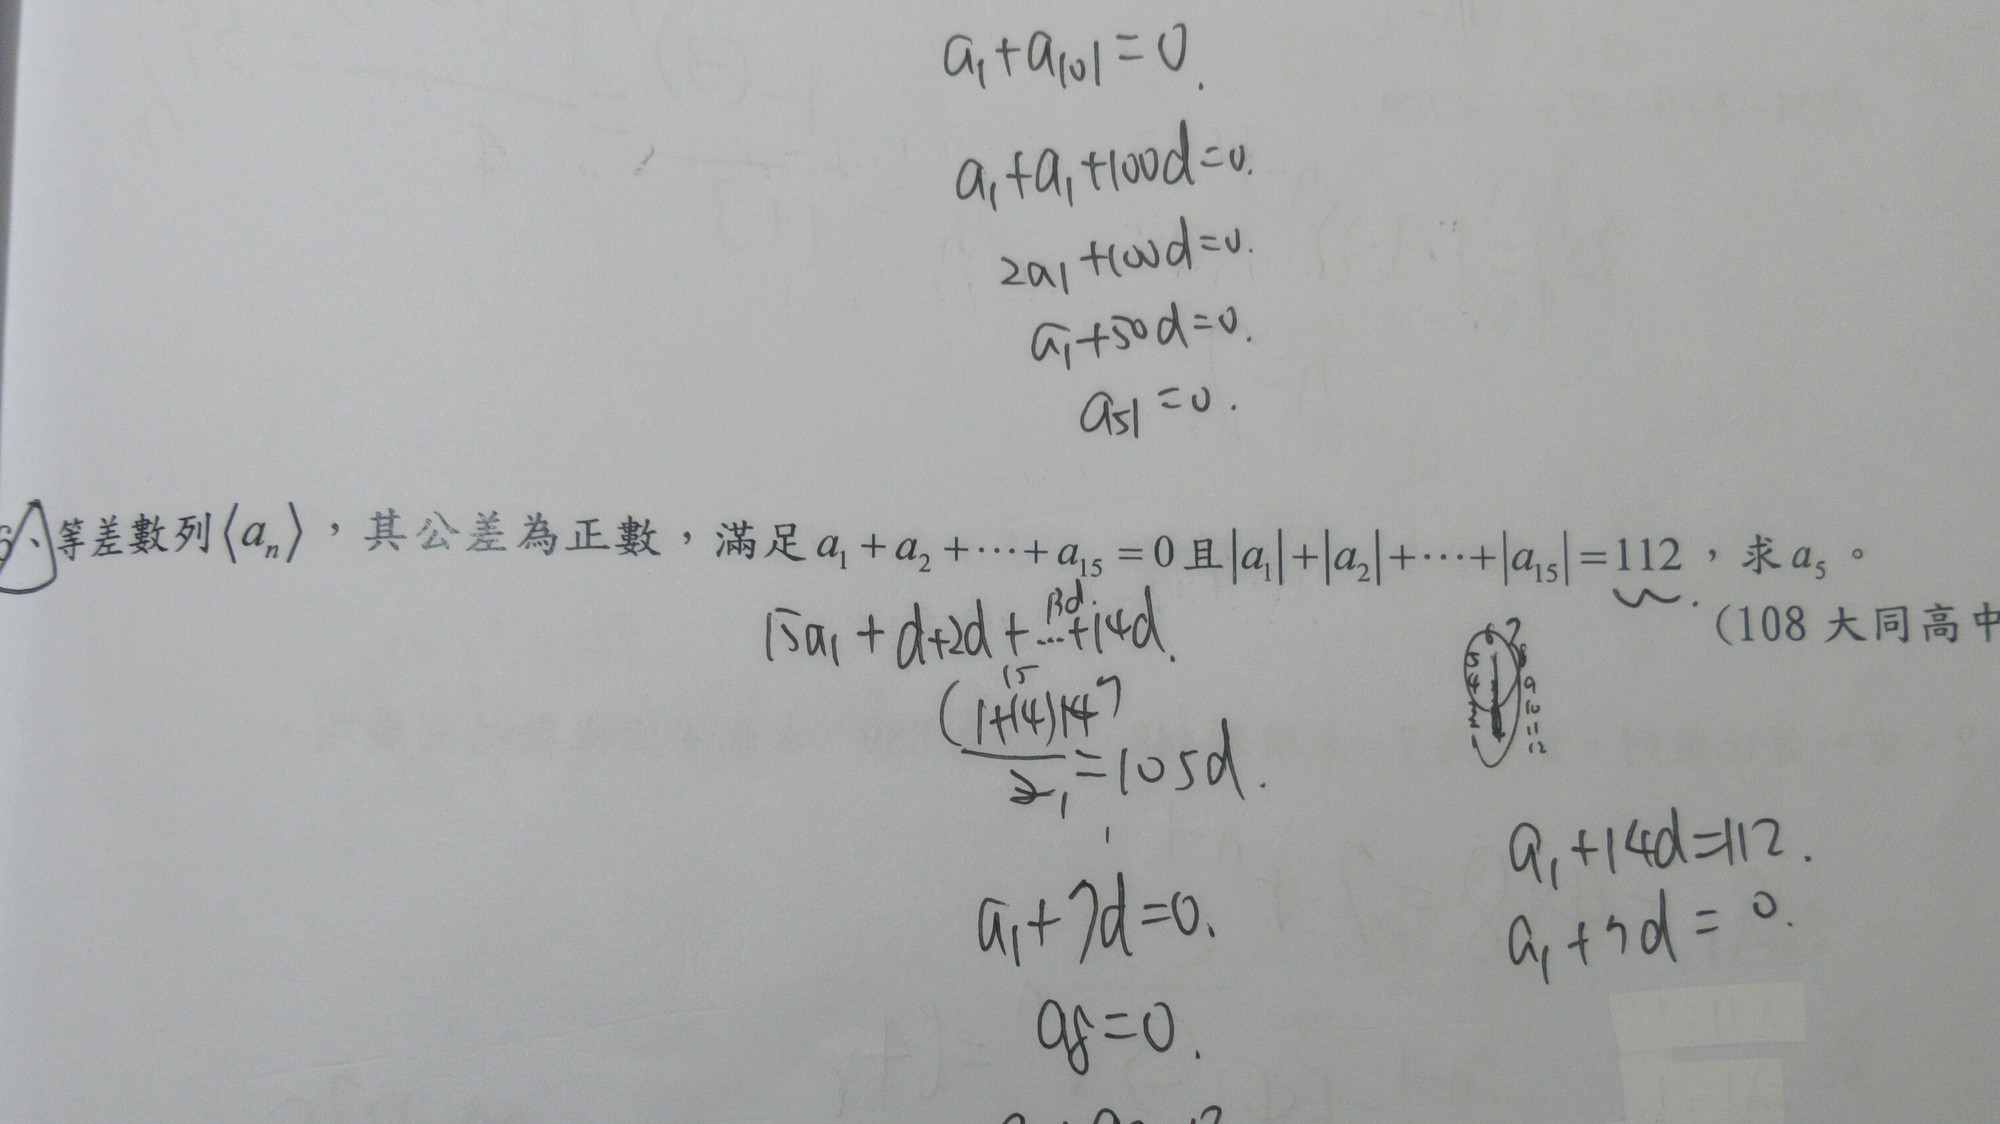 a₁+a₁₀₁=0.
a₁+a₁+100d=0.
2a₁+100d=0.
a₁+50d=0.
a₅₁=0.
等差數列⟨aₙ⟩，其公差為正數，滿足a₁+a₂+⋯+a₁₅=0且|a₁|+|a₂|+⋯+|a₁₅|=112，求a₅。
(108 大同高中
15a₁+d+2d+...13d.+14d.
15
(1+14)14 7
2 1 =105d.
6 7
5 8
4 9
10
11
12
a₁+14d=112.
a₁+7d=0.
a₁+7d=0.
a₈=0.